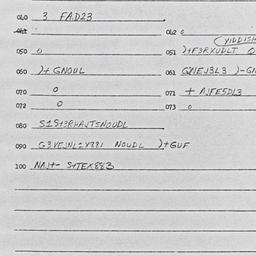 040 3 FAD23
042 0
(YIDDISH
050 0 051 )+F3RXUDLT
060 )+ GNOUL 061 GXIEJ3L3 )-GN
070 0 071 + AJFE5DL3
072 0 073 0
080 S1S+3RHAJT5NOUDL
090 G3VEJNL2X881 NOUDL )+GUF
100 NAJ+- S+TEX883